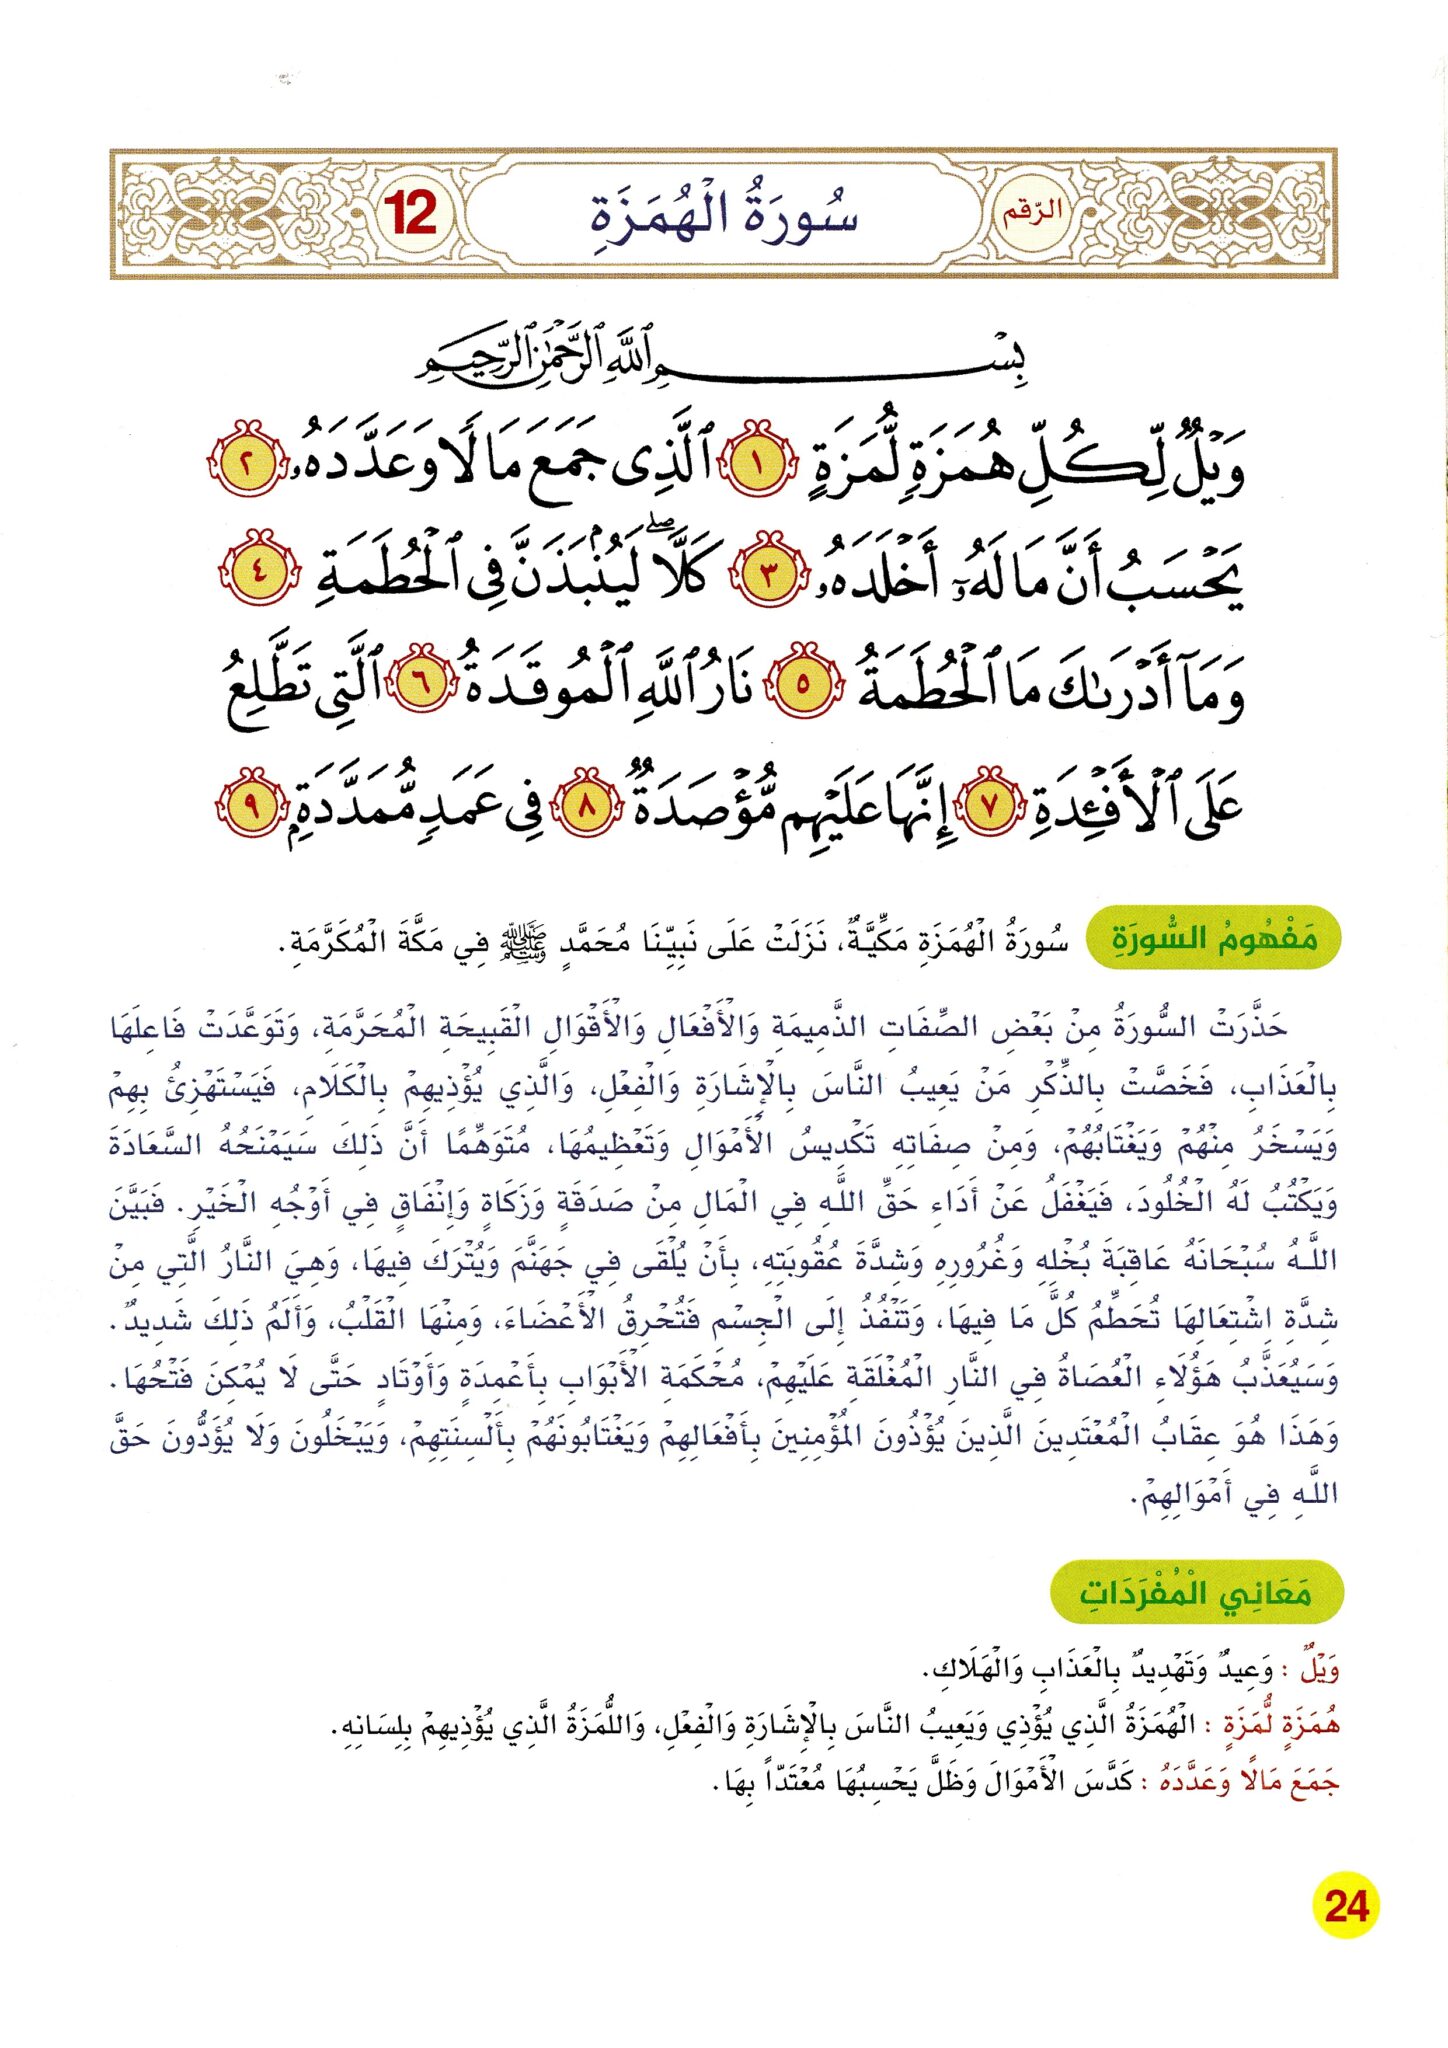 الرّقم سُورَةُ الْهُمَزَةِ 12
بِسْمِ ٱللَّهِ ٱلرَّحْمَٰنِ ٱلرَّحِيمِ
وَيْلٌ لِّكُلِّ هُمَزَةٍ لُّمَزَةٍ ١ ٱلَّذِى جَمَعَ مَالًا وَعَدَّدَهُۥ ٢
يَحْسَبُ أَنَّ مَالَهُۥٓ أَخْلَدَهُۥ ٣ كَلَّا ۖ لَيُنۢبَذَنَّ فِى ٱلْحُطَمَةِ ٤
وَمَآ أَدْرَىٰكَ مَا ٱلْحُطَمَةُ ٥ نَارُ ٱللَّهِ ٱلْمُوقَدَةُ ٦ ٱلَّتِى تَطَّلِعُ
عَلَى ٱلْأَفْـِٔدَةِ ٧ إِنَّهَا عَلَيْهِم مُّؤْصَدَةٌ ٨ فِى عَمَدٍ مُّمَدَّدَةٍۭ ٩
مَفْهُومُ السُّورَةِ سُورَةُ الْهُمَزَةِ مَكِّيَّةٌ، نَزَلَتْ عَلَى نَبِيِّنَا مُحَمَّدٍ ﷺ فِي مَكَّةَ الْمُكَرَّمَةِ.
حَذَّرَتْ السُّورَةُ مِنْ بَعْضِ الصِّفَاتِ الذَّمِيمَةِ وَالْأَفْعَالِ وَالْأَقْوَالِ الْقَبِيحَةِ الْمُحَرَّمَةِ، وَتَوَعَّدَتْ فَاعِلَهَا
بِالْعَذَابِ، فَخَصَّتْ بِالذِّكْرِ مَنْ يَعِيبُ النَّاسَ بِالْإِشَارَةِ وَالْفِعْلِ، وَالَّذِي يُؤْذِيهِمْ بِالْكَلَامِ، فَيَسْتَهْزِئُ بِهِمْ
وَيَسْخَرُ مِنْهُمْ وَيَغْتَابُهُمْ، وَمِنْ صِفَاتِهِ تَكْدِيسُ الْأَمْوَالِ وَتَعْظِيمُهَا، مُتَوَهِّمًا أَنَّ ذَلِكَ سَيَمْنَحُهُ السَّعَادَةَ
وَيَكْتُبُ لَهُ الْخُلُودَ، فَيَغْفَلُ عَنْ أَدَاءِ حَقِّ اللَّهِ فِي الْمَالِ مِنْ صَدَقَةٍ وَزَكَاةٍ وَإِنْفَاقٍ فِي أَوْجُهِ الْخَيْرِ. فَبَيَّنَ
اللَّهُ سُبْحَانَهُ عَاقِبَةَ بُخْلِهِ وَغُرُورِهِ وَشِدَّةَ عُقُوبَتِهِ، بِأَنْ يُلْقَى فِي جَهَنَّمَ وَيُتْرَكَ فِيهَا، وَهِيَ النَّارُ الَّتِي مِنْ
شِدَّةِ اِشْتِعَالِهَا تُحَطِّمُ كُلَّ مَا فِيهَا، وَتَنْفُذُ إِلَى الْجِسْمِ فَتُحْرِقُ الْأَعْضَاءَ، وَمِنْهَا الْقَلْبُ، وَأَلَمُ ذَلِكَ شَدِيدٌ.
وَسَيُعَذَّبُ هَؤُلَاءِ الْعُصَاةُ فِي النَّارِ الْمُغْلَقَةِ عَلَيْهِمْ، مُحْكَمَةِ الْأَبْوَابِ بِأَعْمِدَةٍ وَأَوْتَادٍ حَتَّى لَا يُمْكِنَ فَتْحُهَا.
وَهَذَا هُوَ عِقَابُ الْمُعْتَدِينَ الَّذِينَ يُؤْذُونَ الْمُؤْمِنِينَ بِأَفْعَالِهِمْ وَيَغْتَابُونَهُمْ بِأَلْسِنَتِهِمْ، وَيَبْخَلُونَ وَلَا يُؤَدُّونَ حَقَّ
اللَّهِ فِي أَمْوَالِهِمْ.
مَعَانِي الْمُفْرَدَاتِ
وَيْلٌ : وَعِيدٌ وَتَهْدِيدٌ بِالْعَذَابِ وَالْهَلَاكِ.
هُمَزَةٍ لُّمَزَةٍ : الْهُمَزَةُ الَّذِي يُؤْذِي وَيَعِيبُ النَّاسَ بِالْإِشَارَةِ وَالْفِعْلِ، وَاللُّمَزَةُ الَّذِي يُؤْذِيهِمْ بِلِسَانِهِ.
جَمَعَ مَالًا وَعَدَّدَهُ : كَدَّسَ الْأَمْوَالَ وَظَلَّ يَحْسِبُهَا مُعْتَدّاً بِهَا.
24